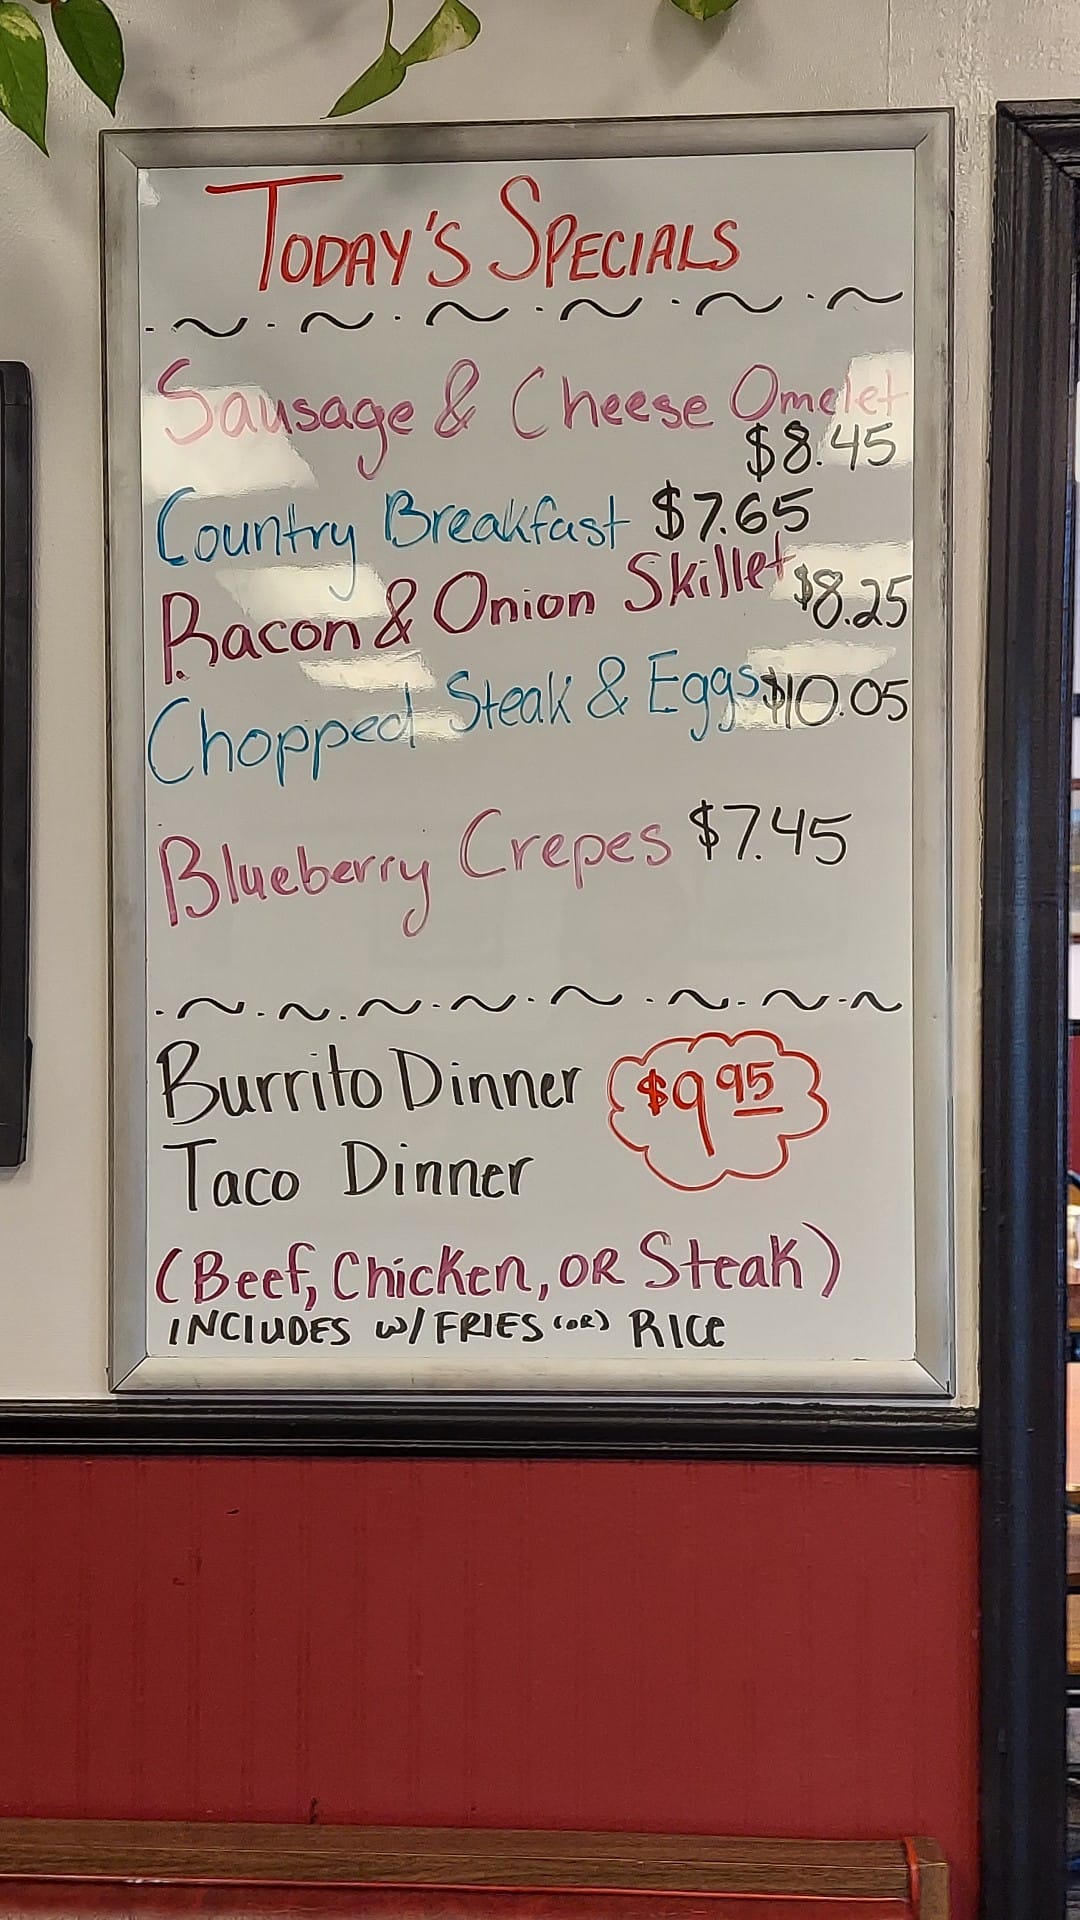 Today's Specials
Sausage & Cheese Omelet
$8.45
Country Breakfast $7.65
Bacon & Onion Skillet $8.25
Chopped Steak & Eggs $10.05
Blueberry Crepes $7.45
Burrito Dinner $9.95
Taco Dinner
(Beef, Chicken, OR Steak)
INCLUDES W/ FRIES (OR) RICE